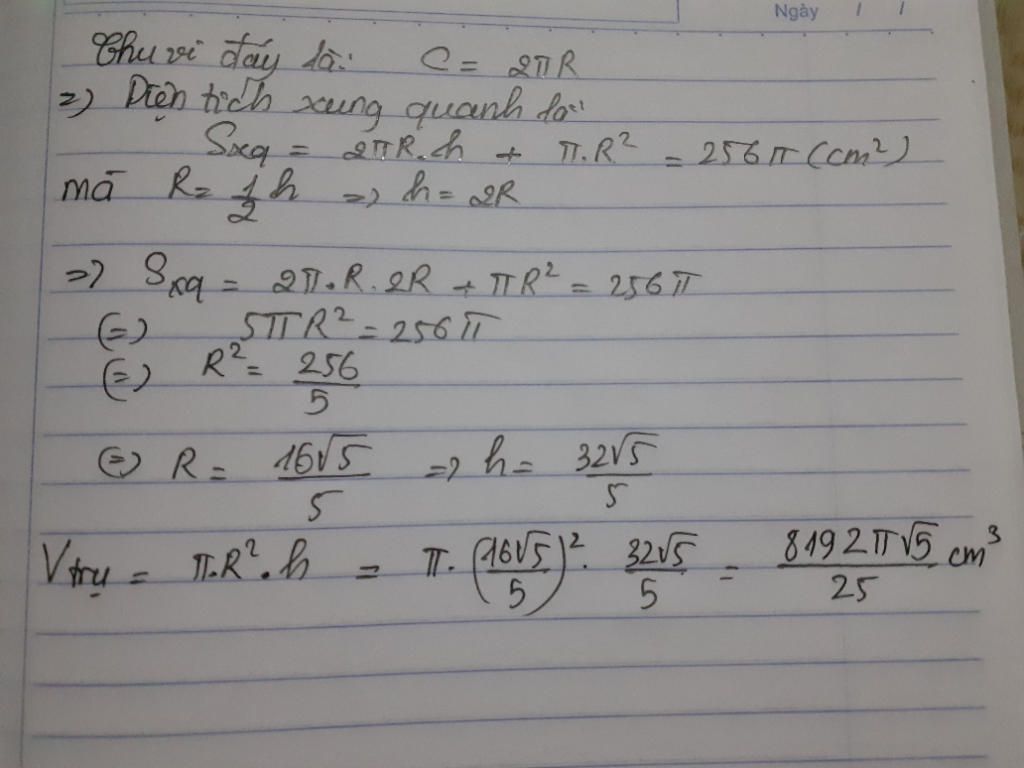 Ngày / /
Chu vi đáy là: C = 2πR
=) Diện tích xung quanh là:
Sxq = 2πR.h + π.R² = 256π (cm²)
mà R = 1/2 h => h = 2R
=> Sxq = 2π.R.2R + πR² = 256π
(=) 5πR² = 256π
(=) R² = 256/5
(=) R = 16√5/5 => h = 32√5/5
Vtrụ = π.R².h = π.(16√5/5)².32√5/5 = 8192π√5/25 cm³